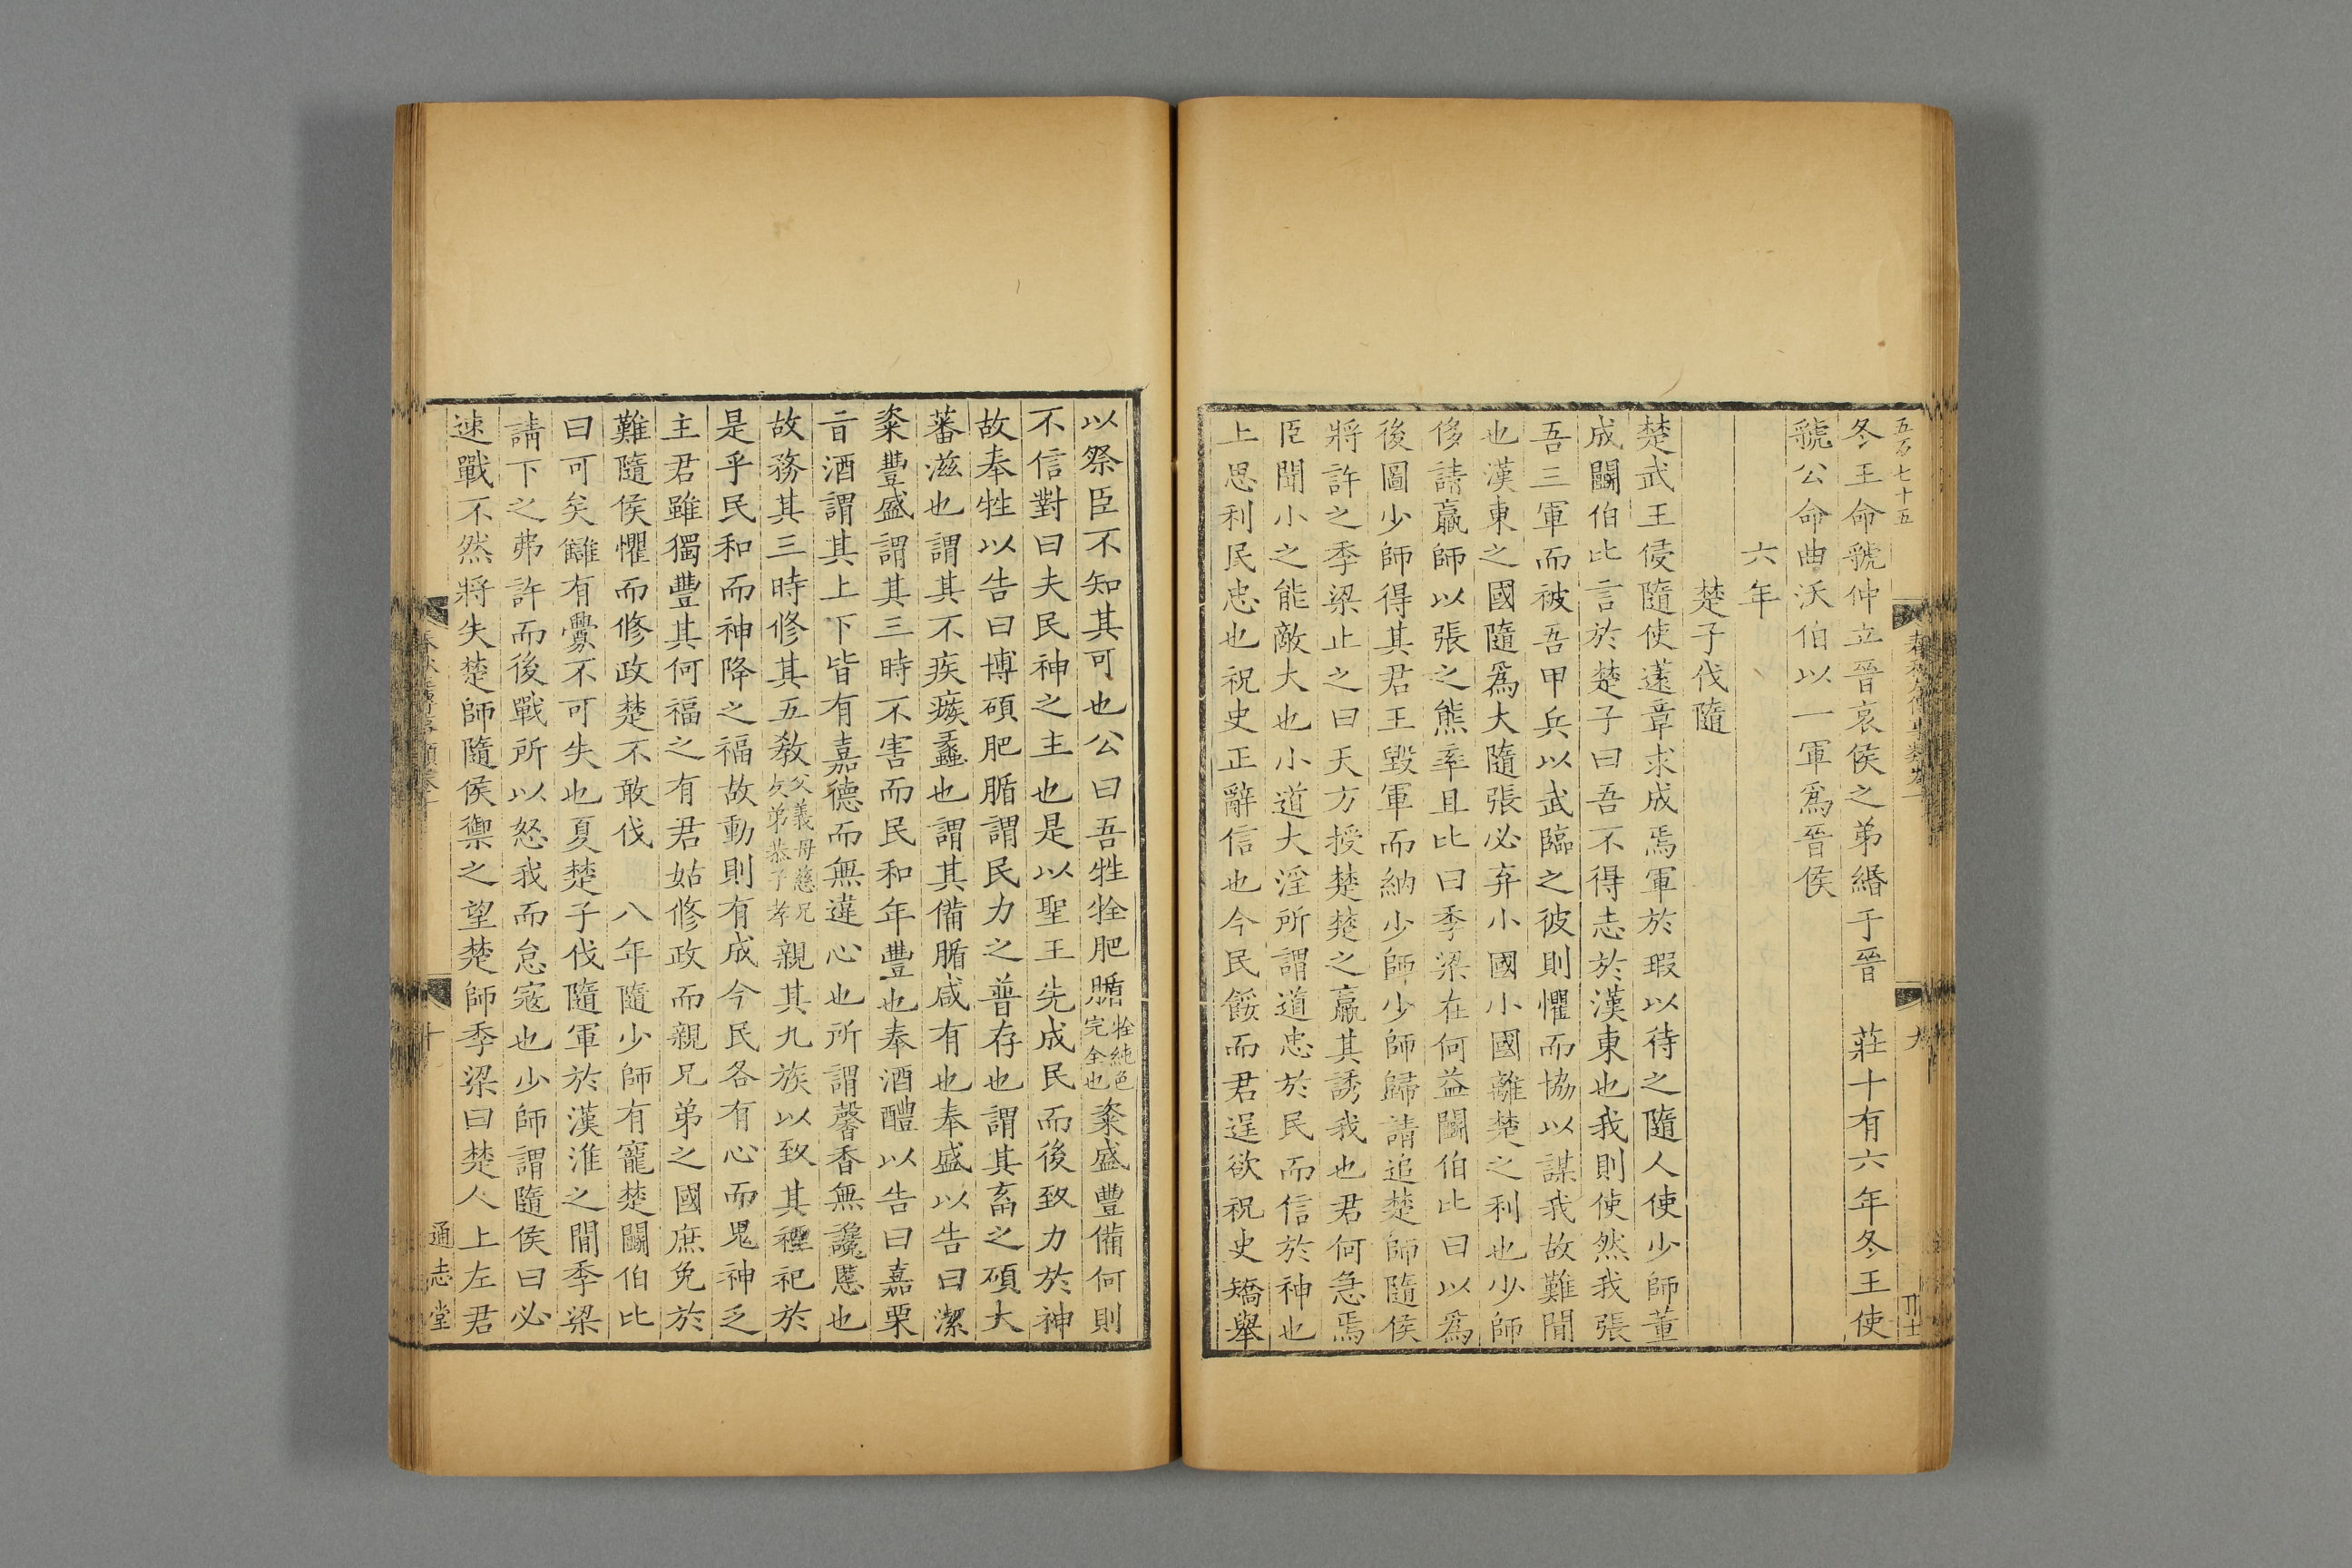 五百七十五
冬王命虢仲立晉哀侯之弟緡于晉　莊十有六年冬王使
虢公命曲沃伯以一軍爲晉侯
六年
楚子伐隨
楚武王侵隨使薳章求成焉軍於瑕以待之隨人使少師董
成鬭伯比言於楚子曰吾不得志於漢東也我則使然我張
吾三軍而被吾甲兵以武臨之彼則懼而協以謀我故難閒
也漢東之國隨爲大隨張必弃小國小國離楚之利也少師
侈請羸師以張之熊率且比曰季梁在何益鬭伯比曰以爲
後圖少師得其君王毀軍而納少師少師歸請追楚師隨侯
將許之季梁止之曰天方授楚楚之羸其誘我也君何急焉
臣聞小之能敵大也小道大淫所謂道忠於民而信於神也
上思利民忠也祝史正辭信也今民餒而君逞欲祝史矯舉
以祭臣不知其可也公曰吾牲牷肥腯牷純色完全也粢盛豐備何則
不信對曰夫民神之主也是以聖王先成民而後致力於神
故奉牲以告曰博碩肥腯謂民力之普存也謂其畜之碩大
蕃滋也謂其不疾瘯蠡也謂其備腯咸有也奉盛以告曰潔
粢豐盛謂其三時不害而民和年豐也奉酒醴以告曰嘉栗
旨酒謂其上下皆有嘉德而無違心也所謂馨香無讒慝也
故務其三時修其五教父義母慈兄友弟恭子孝親其九族以致其禋祀於
是乎民和而神降之福故動則有成今民各有心而鬼神乏
主君雖獨豐其何福之有君姑修政而親兄弟之國庶免於
難隨侯懼而修政楚不敢伐　八年隨少師有寵楚鬭伯比
曰可矣讎有釁不可失也夏楚子伐隨軍於漢淮之間季梁
請下之弗許而後戰所以怒我而怠寇也少師謂隨侯曰必
速戰不然將失楚師隨侯禦之望楚師季梁曰楚人上左君
十
通志堂